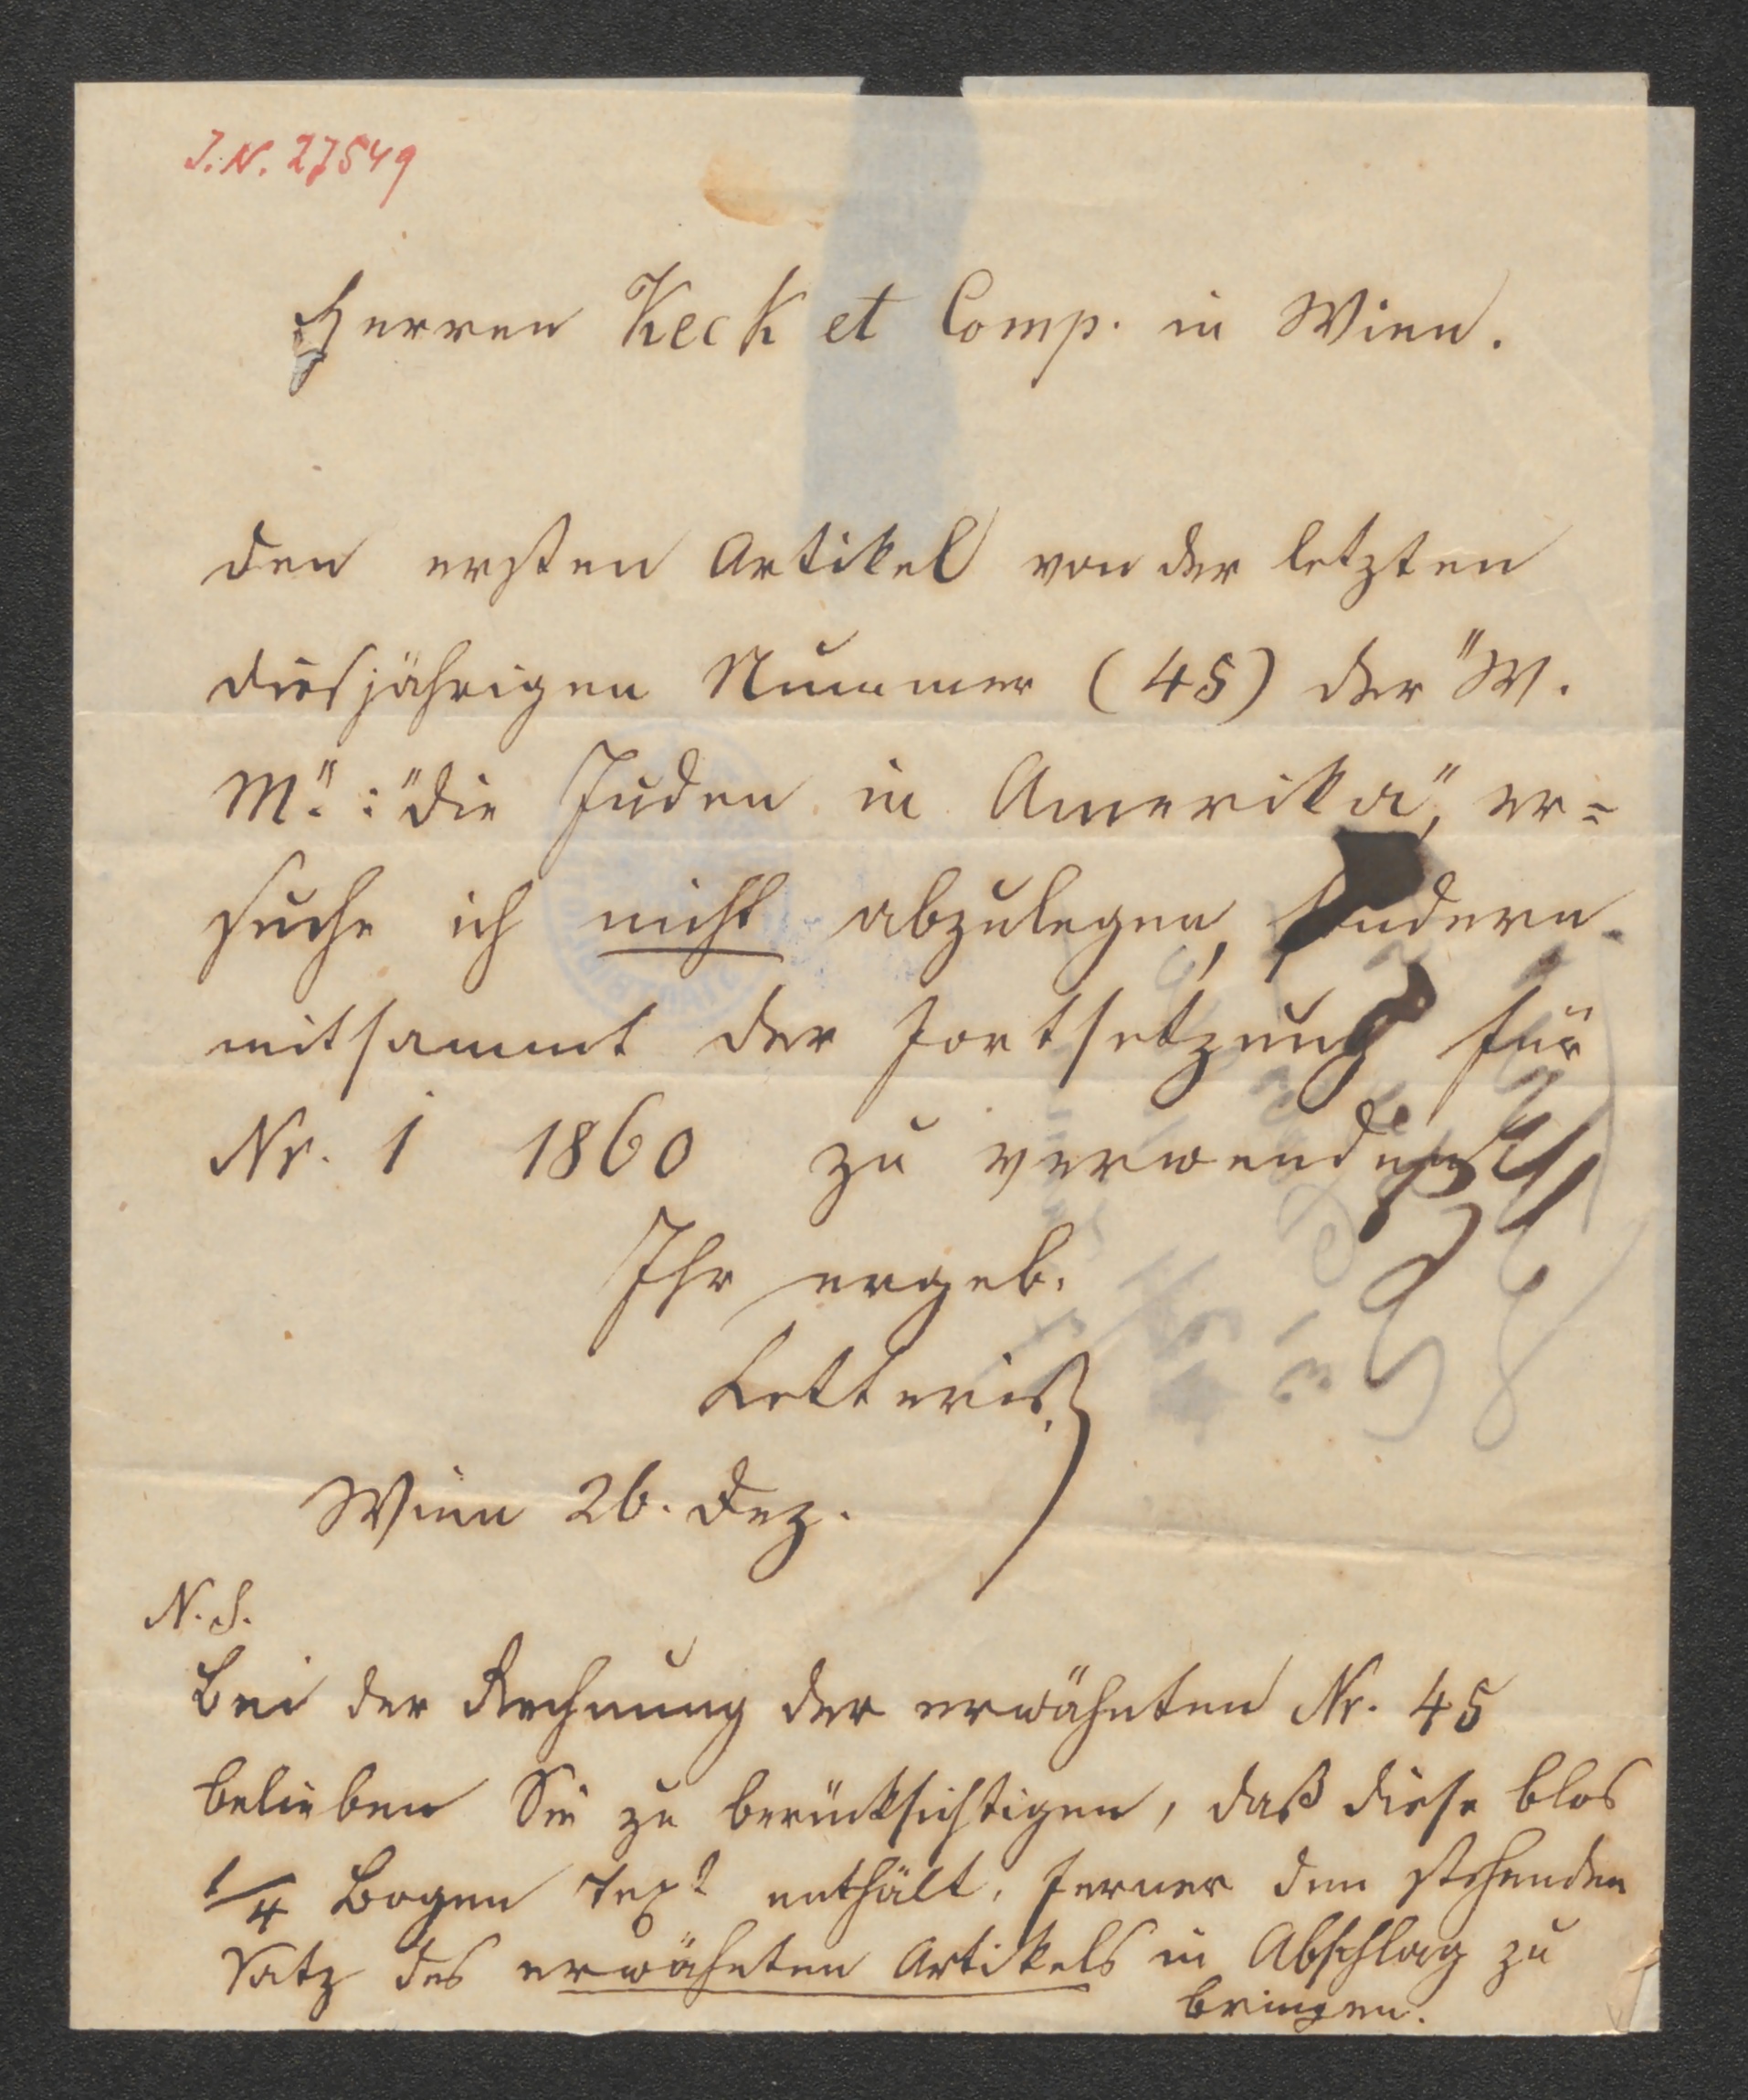 J.N. 27549
Herren Keck et Comp. in Wien.
Den ersten Artikel von der letzten
diesjährigen Nummer (45) der "W.
M.": "Die Juden in Amerika", er=
suche ich nicht abzulegen, sondern
mitsammt der Fortsetzung für
Nr. 1 1860 zu verwenden.
Ihr ergeb.
Letteris.
Wien 26. Dez.
N.S.
Bei der Rechnung der erwähnten Nr. 45
belieben Sie zu berücksichtigen, daß diese blos
1/4 Bogen Text enthält, ferner den stehenden
Satz des erwähnten Artikels in Abschlag zu
bringen.